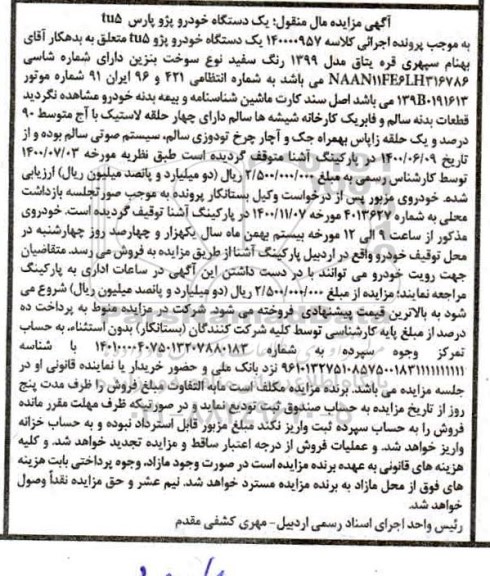 آگهی مزایده مال منقول: یک دستگاه خودرو پژو پارس tu۵
به موجب پرونده اجرائی کلاسه ۱۴۰۰۰۰۹۵۷ یک دستگاه خودرو پژو tu۵ متعلق به بدهکار آقای
بهنام سپهری قره یتاق مدل ۱۳۹۹ رنگ سفید نوع سوخت بنزین دارای شماره شاسی
NAAN۱۱FE۶LH۳۱۶۷۸۶ می باشد به شماره انتظامی ۴۲۱ و ۹۶ ایران ۹۱ شماره موتور
۱۳۹B۰۱۹۱۶۱۳ می باشد اصل سند کارت ماشین شناسنامه و بیمه بدنه خودرو مشاهده نگردید
قطعات بدنه سالم و فابریک کارخانه شیشه ها سالم دارای چهار حلقه لاستیک با آج متوسط ۹۰
درصد و یک حلقه زاپاس بهمراه جک و آچار چرخ تودوزی سالم، سیستم صوتی سالم بوده و از
تاریخ ۱۴۰۰/۰۶/۰۹ در پارکینگ آشنا متوقف گردیده است طبق نظریه مورخه ۱۴۰۰/۰۷/۰۳
توسط کارشناس رسمی به مبلغ ۲/۵۰۰/۰۰۰/۰۰۰ ریال (دو میلیارد و پانصد میلیون ریال) ارزیابی
شده. خودروی مزبور پس از درخواست وکیل بستانکار پرونده به موجب صورتجلسه بازداشت
محلی به شماره ۴۰۱۳۶۲۷ مورخه ۱۴۰۰/۱۱/۰۷ در پارکینگ آشنا توقیف گردیده است. خودروی
مذکور از ساعت ۹ الی ۱۲ مورخه بیستم بهمن ماه سال یکهزار و چهارصد روز چهارشنبه در
محل توقیف خودرو واقع در اردبیل پارکینگ آشنا از طریق مزایده به فروش می رسد. متقاضیان
جهت رویت خودرو می توانند با در دست داشتن این آگهی در ساعات اداری به پارکینگ
مراجعه نمایند؛ مزایده از مبلغ ۲/۵۰۰/۰۰۰/۰۰۰ ریال (دو میلیارد و پانصد میلیون ریال) شروع می
شود به بالاترین قیمت پیشنهادی فروخته می شود شرکت در مزایده منوط به پرداخت ده
درصد از مبلغ پایه کارشناسی توسط کلیه شرکت کنندگان (بستانکار) بدون استثناء، به حساب
تمرکز وجوه سپرده به شماره با شناسه
نزد بانک ملی و حضور خریدار یا نماینده قانونی او در
جلسه مزایده می باشد. برنده مزایده مکلف است مابه التفاوت مبلغ فروش را ظرف مدت پنج
روز از تاریخ مزایده به حساب صندوق ثبت تودیع نماید و در صورتیکه ظرف مهلت مقرر مانده
فروش را به حساب سپرده ثبت واریز نکند مبلغ مزبور قابل استرداد نبوده و به حساب خزانه
واریز خواهد شد. و عملیات فروش از درجه اعتبار ساقط و مزایده تجدید خواهد شد. و کلیه
هزینه های قانونی به عهده برنده مزایده است در صورت وجود مازاد، وجوه پرداختی بابت هزینه
های فوق از محل مازاد به برنده مزایده مسترد خواهد شد. نیم عشر و حق مزایده نقداً وصول
خواهد شد.
رئیس واحد اجرای اسناد رسمی اردبیل- مهری کشفی مقدم